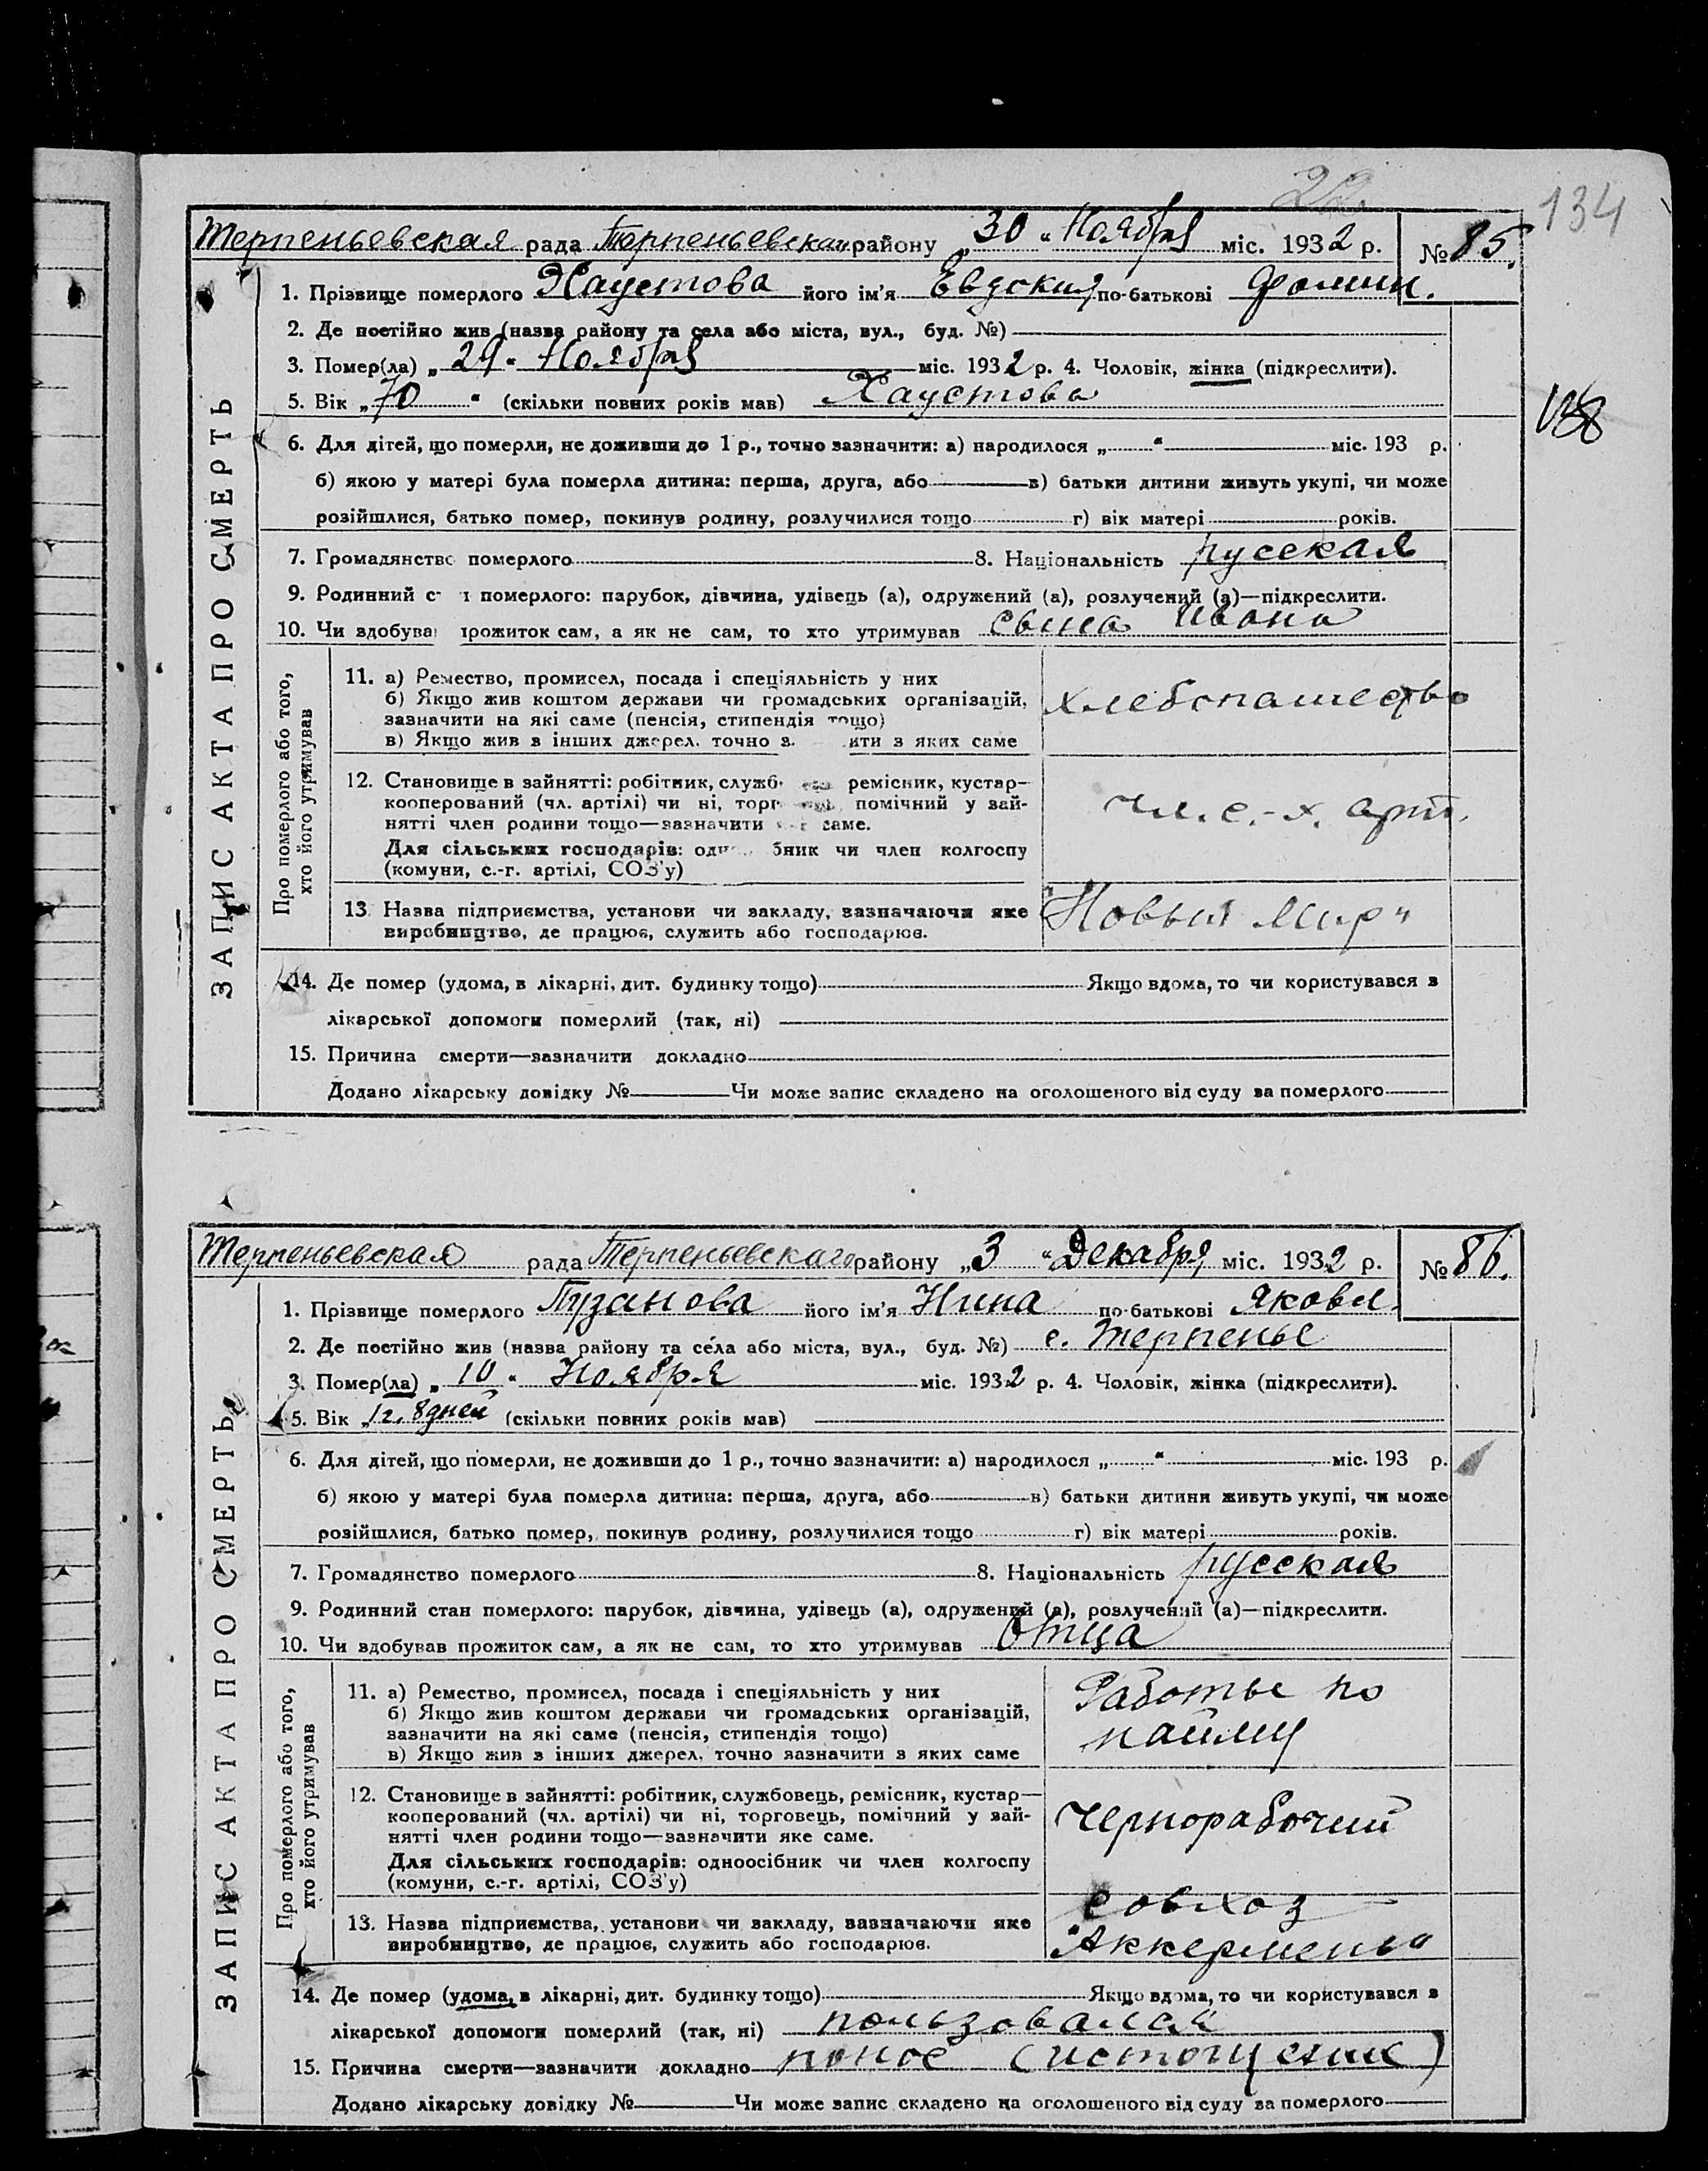 134
Терпеньевская рада Терпеньевскаго району „30“ Ноября міс. 1932 р. № 85.
ЗАПИС АКТА ПРО СМЕРТЬ
1. Прізвище померлого Хаустова його ім'я Евдокия по-батькові Фомин.
2. Де постійно жив (назва району та села або міста, вул., буд. №)
3. Помер(ла) „29“ Ноября міс. 1932 р. 4. Чоловік, жінка (підкреслити).
5. Вік „70“ (скільки повних років мав) Хаустова
138
6. Для дітей, що померли, не доживши до 1 р., точно зазначити: а) народилося „ “ міс. 193 р.
б) якою у матері була померла дитина: перша, друга, або в) батьки дитини живуть укупі, чи може
розійшлися, батько помер, покинув родину, розлучилися тощо г) вік матері років.
7. Громадянство померлого 8. Національність русская
9. Родинний с і померлого: парубок, дівчина, удівець (а), одружений (а), розлучений (а)—підкреслити.
10. Чи здобува прожиток сам, а як не сам, то хто утримував сына Ивана
Про померлого або того,
хто його утримував
11. а) Ремество, промисел, посада і спеціяльність у них
б) Якщо жив коштом держави чи громадських організацій,
зазначити на які саме (пенсія, стипендія тощо)
в) Якщо жив з інших джерел, точно з ити з яких саме
хлебопашество
12. Становище в зайнятті: робітник, служб ремісник, кустар—
кооперований (чл. артілі) чи ні, торг помічний у зай-
нятті член родини тощо—зазначити саме.
Для сільських господарів: одн бник чи член колгоспу
(комуни, с.-г. артілі, СОЗ'у)
чл. с.-х. арт.
13. Назва підприємства, установи чи закладу, зазначаючи яке
виробництво, де працює, служить або господарює.
„Новый Мир“
14. Де помер (удома, в лікарні, дит. будинку тощо) Якщо вдома, то чи користувався з
лікарської допомоги померлий (так, ні)
15. Причина смерти—зазначити докладно
Додано лікарську довідку № Чи може запис складено на оголошеного від суду за померлого
Терпеньевская рада Терпеньевскаго району „3“ Декабря міс. 1932 р. № 86.
ЗАПИС АКТА ПРО СМЕРТЬ
1. Прізвище померлого Пузанова його ім'я Нина по-батькові Яковл.
2. Де постійно жив (назва району та села або міста, вул., буд. №) с. Терпенье
3. Помер(ла) „10“ Ноября міс. 1932 р. 4. Чоловік, жінка (підкреслити).
5. Вік „1г. 8дней (скільки повних років мав)
6. Для дітей, що померли, не доживши до 1 р., точно зазначити: а) народилося „ “ міс. 193 р.
б) якою у матері була померла дитина: перша, друга, або в) батьки дитини живуть укупі, чи може
розійшлися, батько помер, покинув родину, розлучилися тощо г) вік матері років.
7. Громадянство померлого 8. Національність русская
9. Родинний стан померлого: парубок, дівчина, удівець (а), одружений (а), розлучений (а)—підкреслити.
10. Чи здобував прожиток сам, а як не сам, то хто утримував Отца
Про померлого або того,
хто його утримував
11. а) Ремество, промисел, посада і спеціяльність у них
б) Якщо жив коштом держави чи громадських організацій,
зазначити на які саме (пенсія, стипендія тощо)
в) Якщо жив з інших джерел, точно зазначити з яких саме
Работы по
найму
12. Становище в зайнятті: робітник, службовець, ремісник, кустар—
кооперований (чл. артілі) чи ні, торговець, помічний у зай-
нятті член родини тощо—зазначити яке саме.
Для сільських господарів: одноосібник чи член колгоспу
(комуни, с.-г. артілі, СОЗ'у)
Чернорабочий
13. Назва підприємства, установи чи закладу, зазначаючи яке
виробництво, де працює, служить або господарює.
совхоз
"Аккермень"
14. Де помер (удома, в лікарні, дит. будинку тощо) Якщо вдома, то чи користувався з
лікарської допомоги померлий (так, ні) пользовалась
15. Причина смерти—зазначити докладно понос (истощение)
Додано лікарську довідку № Чи може запис складено на оголошеного від суду за померлого